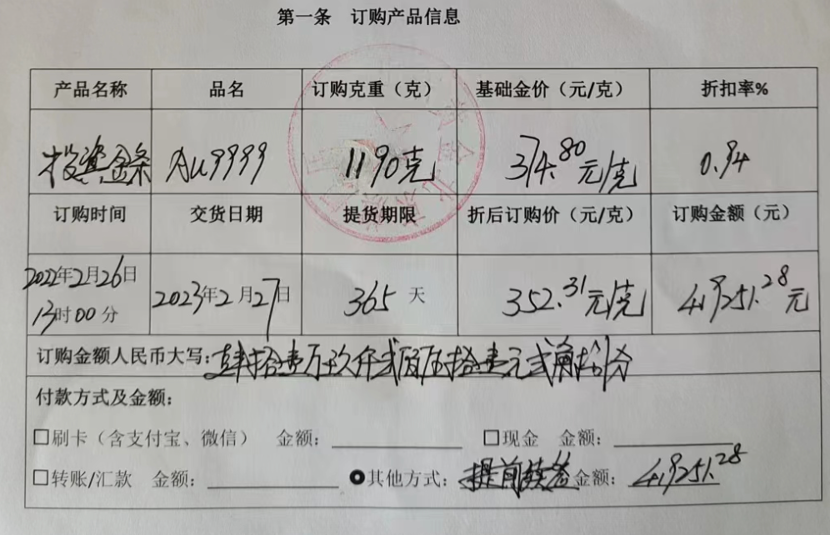 第一条 订购产品信息
产品名称 品名 订购克重（克） 基础金价（元/克） 折扣率%
投资金条 Au9999 1190克 374.80元/克 0.94
订购时间 交货日期 提货期限 折后订购价（元/克） 订购金额（元）
2022年2月26日 13时00分 2023年2月27日 365天 352.31元/克 419251.28元
订购金额人民币大写：肆拾壹万玖仟贰佰伍拾壹元贰角捌分
付款方式及金额：
□刷卡（含支付宝、微信） 金额： □现金 金额：
□转账/汇款 金额： 其他方式：提前续签 金额：419251.28